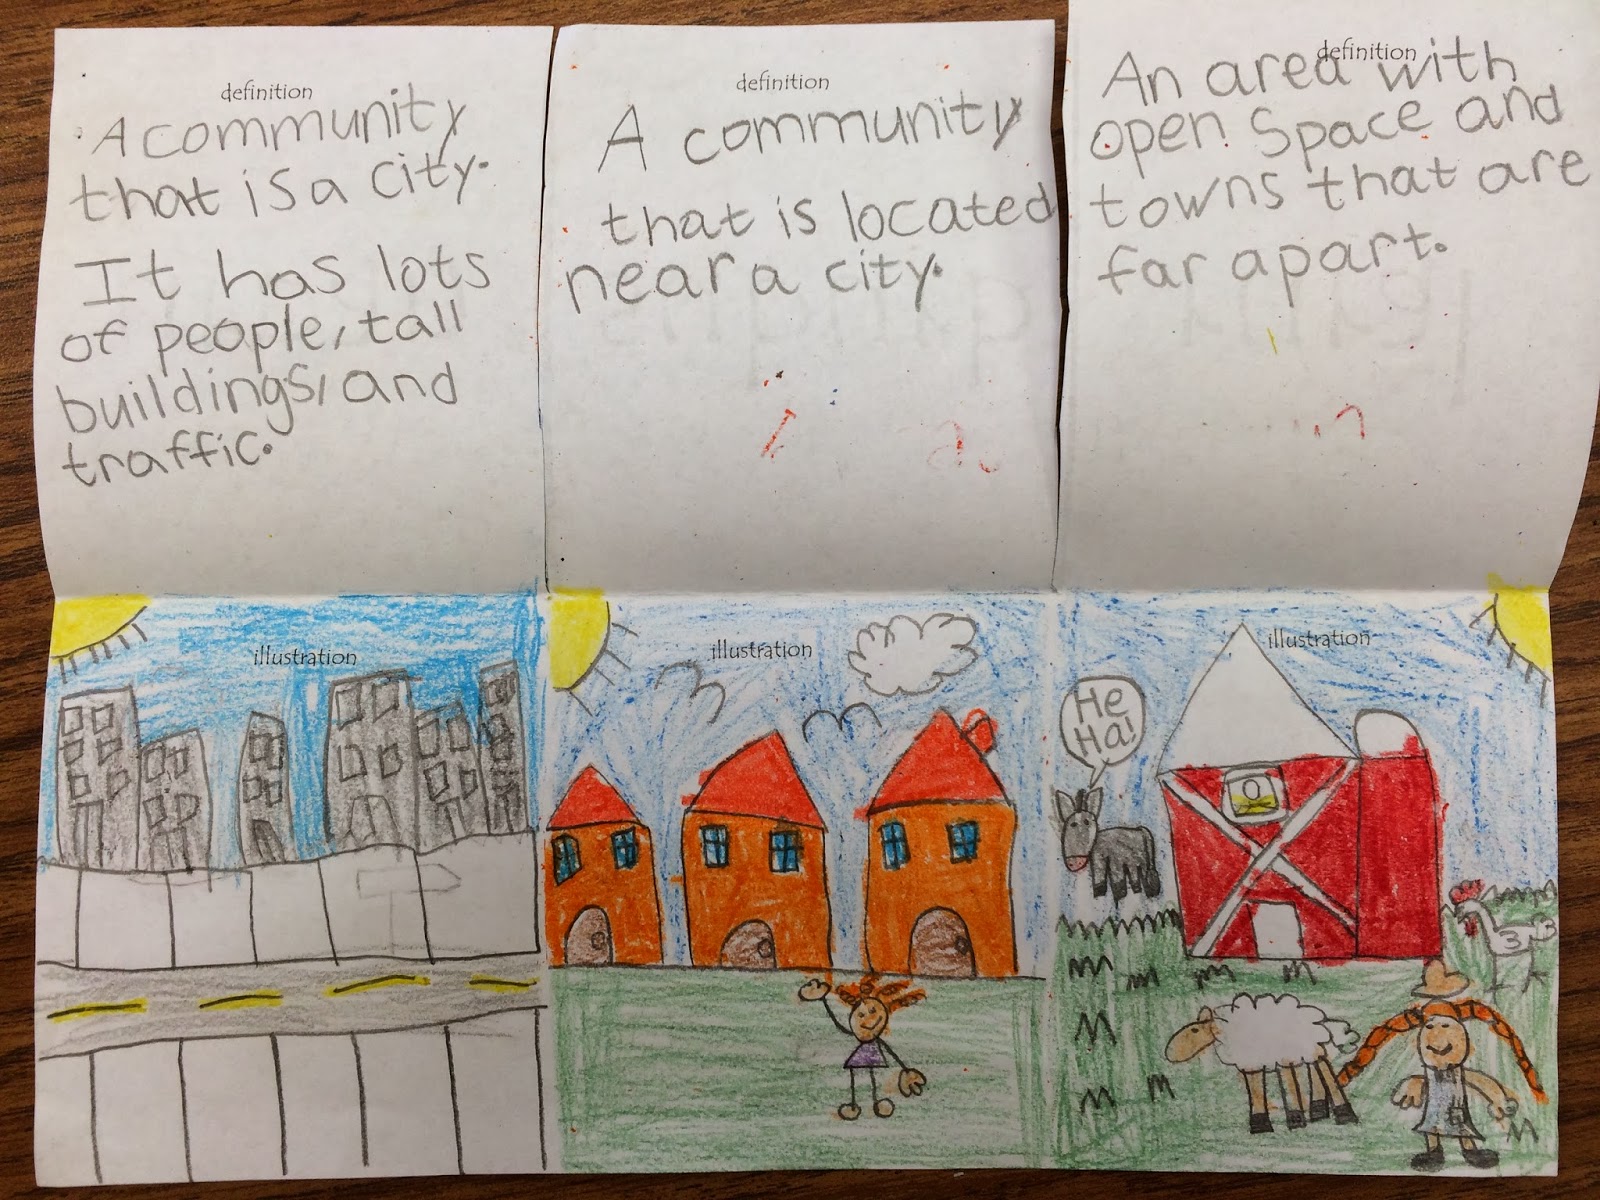 definition
A community
that is a city.
It has lots
of people, tall
buildings, and
traffic.
definition
A community
that is located
near a city.
definition
An area with
open space and
towns that are
far apart.
illustration
illustration
illustration
He
Ha!